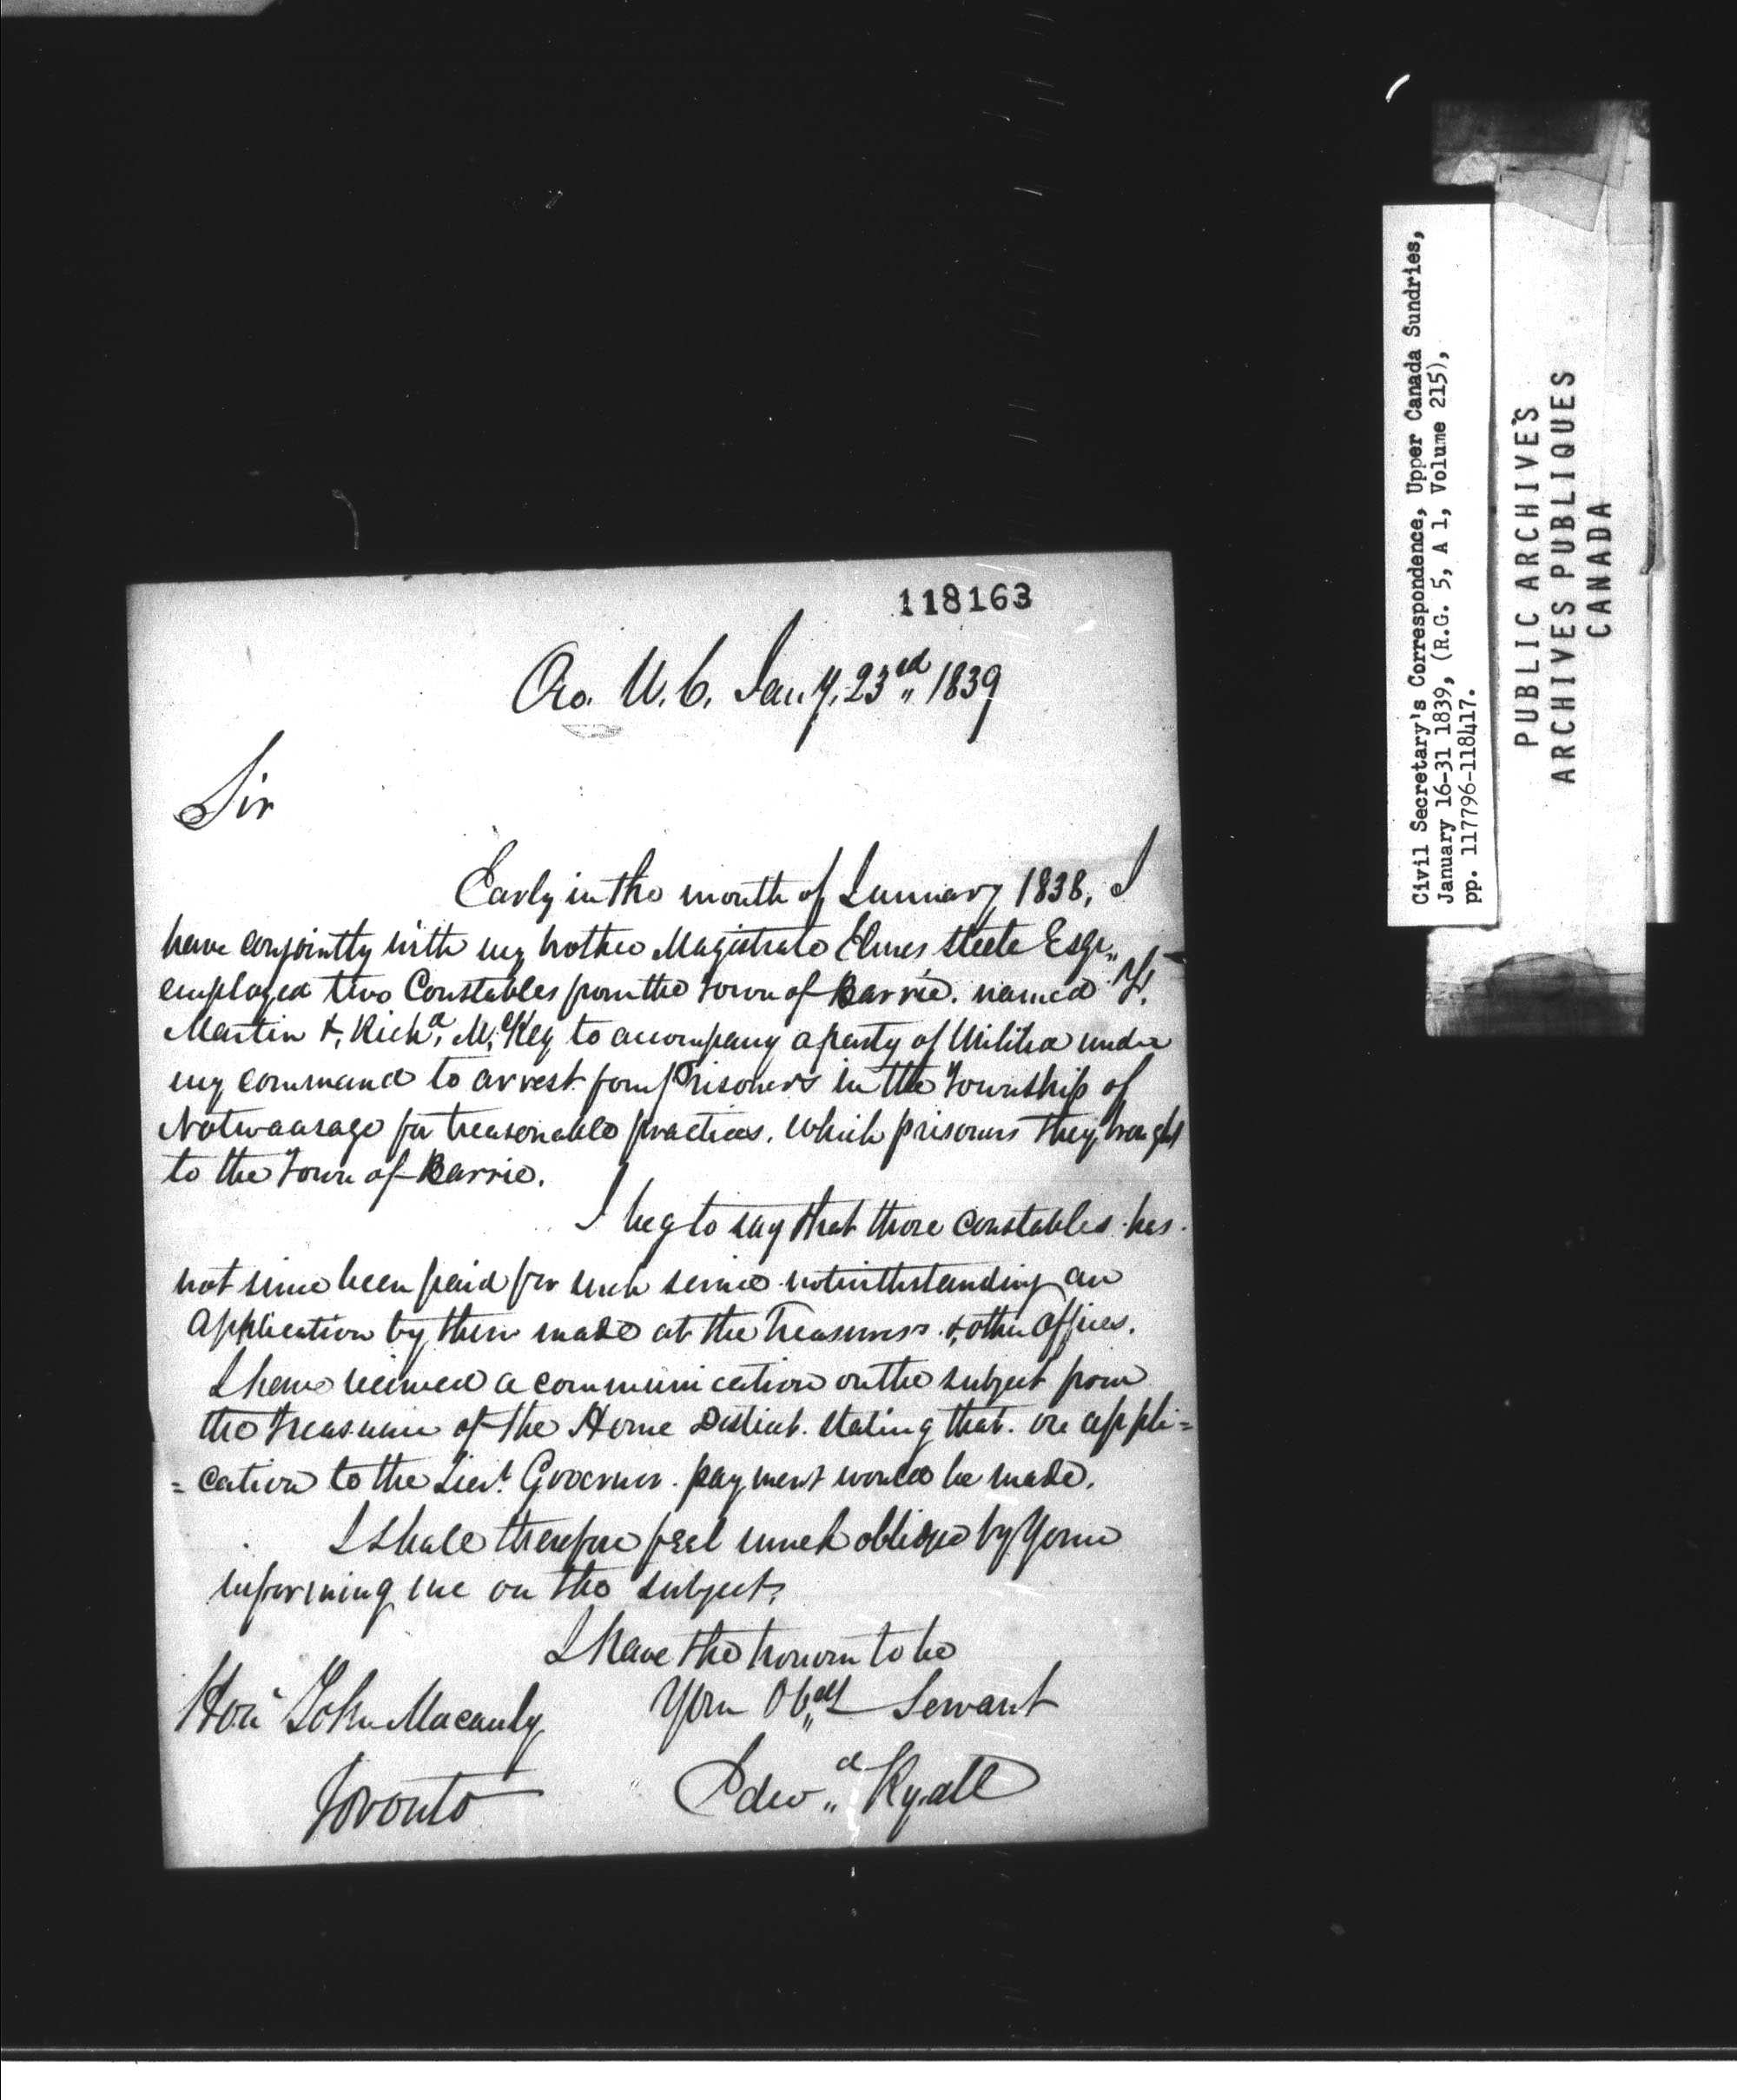 118163
Oro. U. C. Jany. 23rd 1839
Sir
Early in the month of January 1838, I
have conjointly with my brother Magistrate Elmes Steele Esqr.
employed two Constables from the Town of Barrie. named
Martin & Richd. McKey to accompany a party of Militia under
my command to arrest four Prisoners in the Township of
Notwaasago for treasonable practices. which prisoners they brought
to the Town of Barrie.
I beg to say that those Constables has
not since been paid for such service notwithstanding an
application by them made at the Treasurers & other offices.
I have received a communication on the subject from
the Treasurer of the Home District. stating that. on appli=
=cation to the Lieut. Governor. payment would be made.
I shall therefore feel much obliged by Your
informing me on the subject.
I have the honour to be
Your Obedt Servant
Honl John Macauly
Edwd Ryall
Toronto
Civil Secretary's Correspondence, Upper Canada Sundries,
January 16-31 1839, (R.G. 5, A 1, Volume 215),
pp. 117796-118417.
PUBLIC ARCHIVES
ARCHIVES PUBLIQUES
CANADA